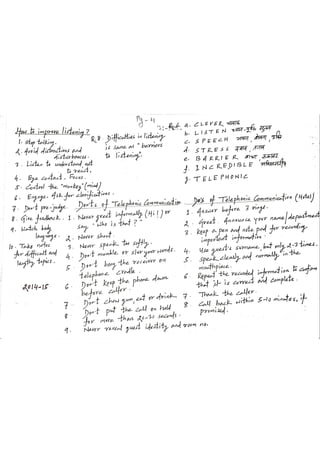 Pg - 4
How to improve listening?
1. Stop talking.
2. Avoid distractions and disturbances.
3. Listen to understand, not to react.
4. Eye contact. Focus.
5. Control the "Monkey" (mind)
6. Engage. Ask for clarifications.
7. Don't pre-judge.
8. Give feedback.
9. Watch body language.
10. Take notes for difficult and lengthy topics.
2014-15
Q.8. Difficulties in listening is same as "barriers to listening".
a. CLEVER
b. LISTEN
c. SPEECH
d. STRESS
e. BARRIER
f. INCREDIBLE
g. TELEPHONIC
Don'ts of Telephonic Communication
1. Never greet informally (Hi!) or say "Who is that?"
2. Never shout.
3. Never speak too softly.
4. Don't mumble or slur your words.
5. Don't bang the receiver on telephone cradle.
6. Don't keep the phone down before caller.
7. Don't chew gum, eat or drink.
8. Don't put the call on hold for more than 20-30 seconds.
9. Never reveal guest identity and room no.
Do's of Telephonic Communication (Hotel)
1. Answer before 3 rings.
2. Greet Announce your name/department
3. Keep a pen and note pad for recording important information.
4. Use guest's surname, but only 2-3 times.
5. Speak clearly and normally in the mouthpiece.
6. Repeat the recorded information to confirm that it is correct and complete.
7. Thank the caller.
8. Call back within 5-10 minutes, if promised.